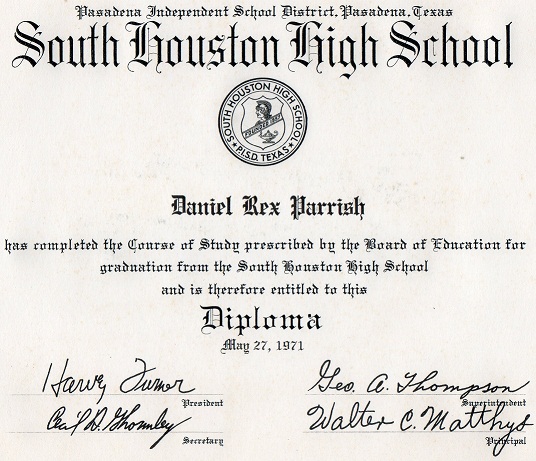 Pasadena Independent School District, Pasadena, Texas
South Houston High School
SOUTH HOUSTON HIGH SCHOOL
P.I.S.D. TEXAS
Daniel Rex Parrish
has completed the Course of Study prescribed by the Board of Education for
graduation from the South Houston High School
and is therefore entitled to this
Diploma
May 27, 1971
Harvey Turner
President
Geo. A. Thompson
Superintendent
Secretary
Walter C. Matthys
Principal